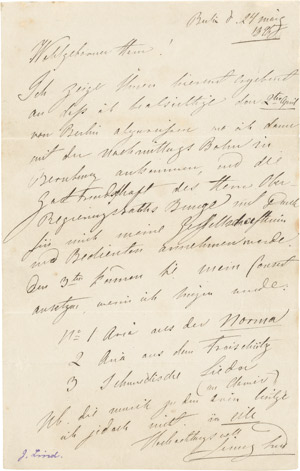 Berlin d. 24 März
Wohlgeborner Herr!
Ich zeige Ihnen hiermit ergebenst
an daß ich beabsichtige den 2ten April
von Berlin abzureisen wo ich dann
mit der Nachmittags Bahn in
Bernburg ankommen, und die
Gastfreundschaft des Herrn Ober
Regierungsraths
für mich meine Gesellschafterin
und Bedienten annehmen werde.
Den 3ten können Sie mein Concert
ansetzen, worin ich singen werde.
No 1 Aria aus der Norma
2 Aria aus dem Freischütz
3 Schwedische Lieder
(am Clavier)
Nb. die Musik zu den Arien besitze
ich jedoch nicht
Hochachtungsvoll
Jenny Lind
J. Lind.